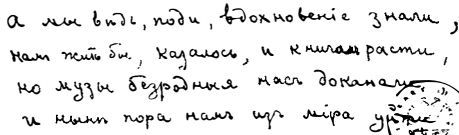 а мы вѣдь, поди, вдохновеніе знали,
нам жить бы, казалось, и книгам расти,
но музы безродныя насъ доканали
и нынѣ пора намъ изъ міра уйти